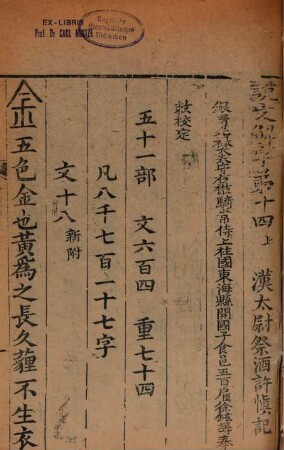 EX-LIBRIS
Prof. Dr. CARL
說文解字弟十四上 漢太尉祭酒許慎記
銀青光祿大夫守右散騎常侍上柱國東海縣開國子食邑五百戶徐鉉等奉
敕校定
五十一部 文六百四 重七十四
凡八千七百一十七字
文十八新附
金五色金也黃爲之長久薶不生衣